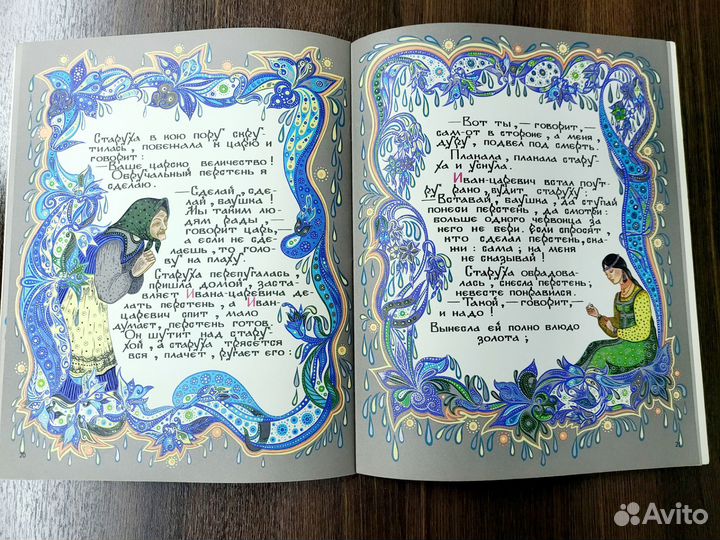 Старуха в кою пору скру-
тилась, побежала к царю и
говорит:
—Ваше царско величество!
Обручальный перстень я
сделаю.
—Сделай, сде-
лай, баушка!
Мы таким лю-
дям рады,—
говорит царь,—
а если не сде-
лаешь, то голо-
ву на плаху.
Старуха перепугалась,
пришла домой, заста-
вляет Ивана-царевича де-
лать перстень, а Иван-
царевич спит, мало
думает, перстень готов.
Он шутит над стару-
хой, а старуха трясётся
вся, плачет, ругает его:
30
—Вот ты,—говорит,—
сам-от в стороне, а меня,
дуру, подвел под смерть.
Плакала, плакала стару-
ха и уснула.
Иван-царевич встал поут-
ру рано, будит старуху:
—Вставай, баушка, да ступай
понеси перстень, да смотри:
больше одного червонца за
него не бери. Если спросят,
кто сделал перстень, ска-
жи: сама; на меня
не сказывай!
Старуха обрадова-
лась, снесла перстень;
невесте понравился.
—Такой,—говорит,—
и надо!
Вынесла ей полно блюдо
золота;
Avito